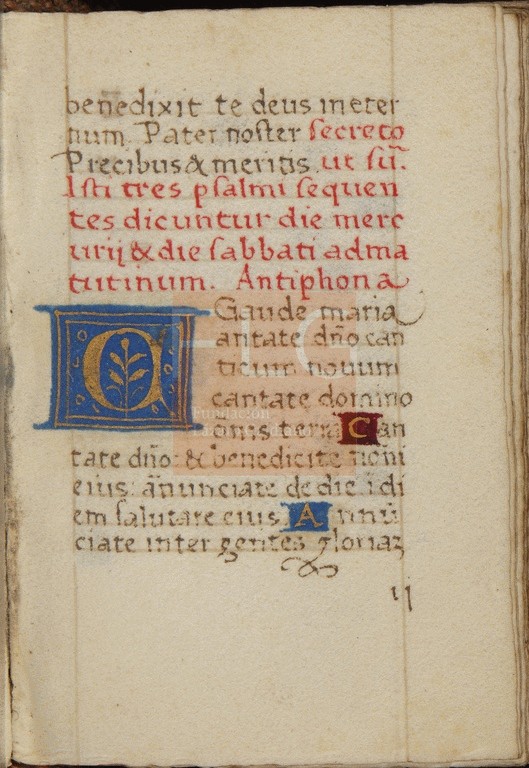 benedixit te deus in eter
num. Pater noster secreto
Precibus & meritis. ut sū.
Isti tres psalmi sequen
tes dicuntur die merc
urij & die sabbati ad ma
tutinum. Antiphona
Gaude maria
C antate dño can
ticum novum
cantate domino
omis terra C an
tate dño: & benedicite noñi
eius: añunciate de die i di
em salutare eius A nnū
ciate inter gentes gloriaz
ij
Fundación